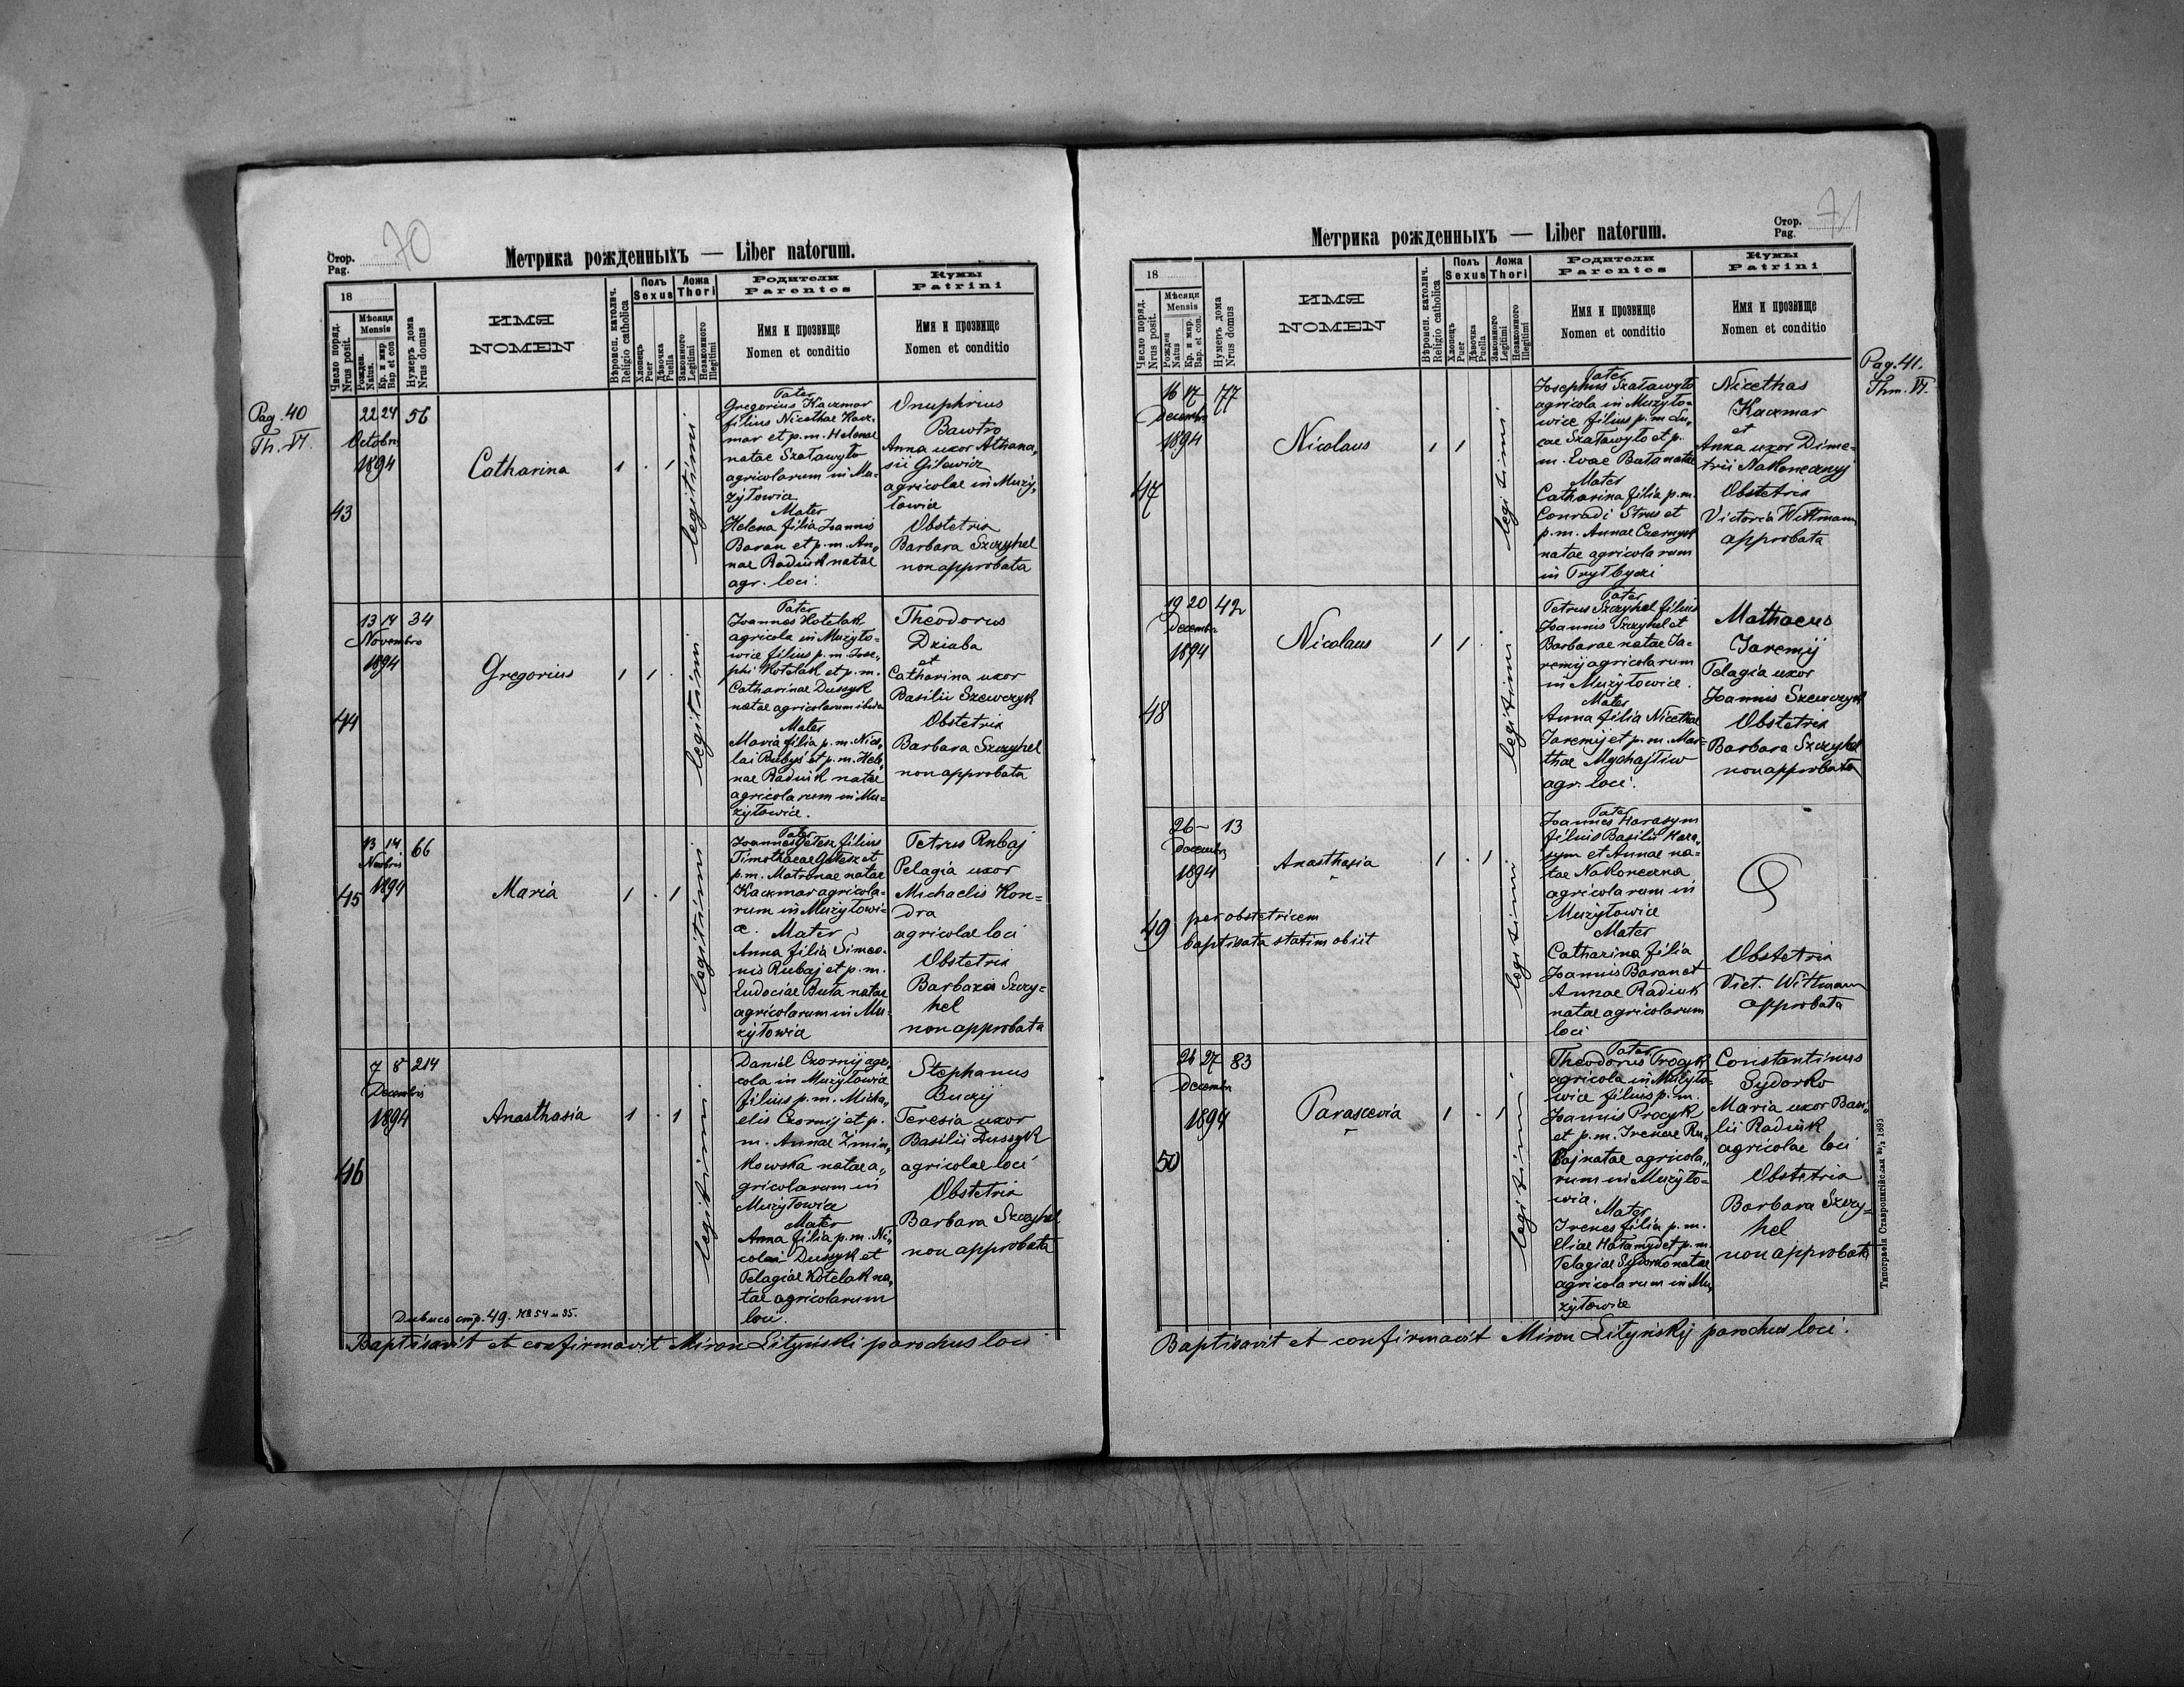 Стор.
Pag.
70
Метрика рожденныхъ — Liber natorum.
18
Число поряд.
Nrus posit.
Мѣсяця
Mensis
Рожден.
Natus.
Кр. и мир
Bap et con
Нумеръ дома
Nrus domus
ИМЯ
NOMEN
Вѣроисп. католич.
Religio catholica
Полъ
Sexus
Хлопець
Puer
Дѣвочка
Puella
Ложа
Thori
Законного
Legitimi
Незаконного
Illegitimi
Родители
Parentes
Имя и прозвище
Nomen et conditio
Кумы
Patrini
Имя и прозвище
Nomen et conditio
Pag. 40
Th. VI.
22 24 56
Octobris
1894
43
Catharina
1 . 1
legitimi
Pater
Gregorius Kaczmar
filius Nicethae Kacz„
mar et p.m. Helenae
natae Szaławyło
agricolarum in Mu=
żyłowice
Mater
Helena filia Joannis
Baran et p.m. An„
nae Radiuk natae
agr. loci.
Onuphrius
Bawtro
Anna uxor Athana„
sii Gilewicz
agricolae in Muży„
łowice
Obstetrix
Barbara Szczyhel
non approbata
13 14 34
Novembro
1894
44
Gregorius
1 1 .
legitimi
Pater
Joannes Kotelak
agricola in Mużyło=
wice filius p.m. Jose„
phi Kotelak et p.m.
Catharinae Dussyk
natae agricolarum ibidem
Mater
Maria filia p.m. Nico„
lai Rubyś et p.m. Hele„
nae Radiuk natae
agricolarum in Mu=
żyłowice.
Theodorus
Dziaba
et
Catharina uxor
Basilii Szewczyk
Obstetrix
Barbara Szczyhel
non approbata
13 14 66
Novbris
1894
45
Maria
1 . 1
legitimi
Pater
Joannes Gełesz filius
Timothaeae Gełesz et
p.m. Matronae natae
Kaczmar agricola=
rum in Mużyłowi=
ce. Mater
Anna filia Simeo=
nis Rubaj et p.m.
Eudociae Buła natae
agricolarum in Mu=
żyłowice
Petrus Rubaj
Pelagia uxor
Michaelis Kon=
dra
agricolae loci
Obstetrix
Barbara Szczy=
hel
non approbata
7 8 214
Decembris
1894
46
Anasthasia
1 . 1
legitimi
Daniel Czornij agri„
cola in Mużyłowice
filius p.m. Micha„
elis Czornij et p.
m. Annae Zimin„
kowska natae a„
gricolarum in
Mużyłowice
Mater
Anna filia p.m. Ni„
colai Dussyk et
Pelagiae Kotelak na„
tae agricolarum
loci.
Stephanus
Buczij
Teresia uxor
Basilii Dussyk
agricolae loci
Obstetrix
Barbara Szczyhel
non approbata
стр. 49. №54 и 35.
Baptisavit et confirmavit Miron Lityński parochus loci
Метрика рожденныхъ — Liber natorum.
Стор.
Pag.
71
18
Число поряд.
Nrus posit.
Мѣсяця
Mensis
Рожден
Natus
Кр. и мир.
Bap. et con.
Нумеръ дома
Nrus domus
ИМЯ
NOMEN
Вѣроисп. католич.
Religio catholica
Полъ
Sexus
Хлопець
Puer
Дѣвочка
Puella
Ложа
Thori
Законного
Legitimi
Незаконного
Illegitimi
Родители
Parentes
Имя и прозвище
Nomen et conditio
Кумы
Patrini
Имя и прозвище
Nomen et conditio
Pag. 41.
Thm. VI.
16 17 77
Decembr
1894
47
Nicolaus
1 1
legitimi
Pater
Josephus Szaławyło
agricola in Mużyło=
wice filius p.m. Lu„
cae Szaławyło et p.
m. Evae Buła natae
Mater
Catharina filia p.m.
Conradi Strus et
p.m. Annae Czernyk
natae agricolarum
in Przyłbyczi
Nicethas
Kaczmar
et
Anna uxor Dime=
trii Nakonecznyj
Obstetrix
Victoria Wittmann
approbata
19 20 42
Decembr
1894
48
Nicolaus
1 1 .
legitimi
Pater
Petrus Szczyhel filius
Joannis Szczyhel et
Barbarae natae Ja=
remij agricolarum
in Mużyłowice.
Mater
Anna filia Nicethae
Jaremij et p.m. Mar=
thae Mychajliw
agr. loci.
Mathaeus
Jaremij
Pelagia uxor
Joannis Szewczyk
Obstetrix
Barbara Szczyhel
non approbata
26 — 13
Decembris
1894
49
per obstetricem
baptisata statim obiit
Anasthasia
1 . 1
legitimi
Pater
Joannes Harasym
filius Basilii Hara„
sym et Annae na=
tae Nakoneczna
agricolarum in
Mużyłowice
Mater
Catharina filia
Joannis Baran et
Annae Radiuk
natae agricolarum
loci
Obstetrix
Vict. Wittmann
approbata
26 27 83
Decembr
1894
50
Parascevia
1 . 1
legitimi
Pater
Theodorus Procyk
agricola in Mużyło=
wice filius p.m.
Joannis Procyk
et p.m. Irenae Ru„
baj natae agricola„
rum in Mużyło=
wice.
Mater
Irenes filia p.m.
Eliae Hałamyd et p.m.
Pelagiae Sydorko natae
agricolarum in Mu„
żyłowice
Constantinus
Sydorko
Maria uxor Basi„
lii Radiuk
agricolae loci
Obstetrix
Barbara Szczy=
hel
non approbata
Baptisavit et confirmavit Miron Lityńskij parochus loci.
Типографія Ставропигійская 1895